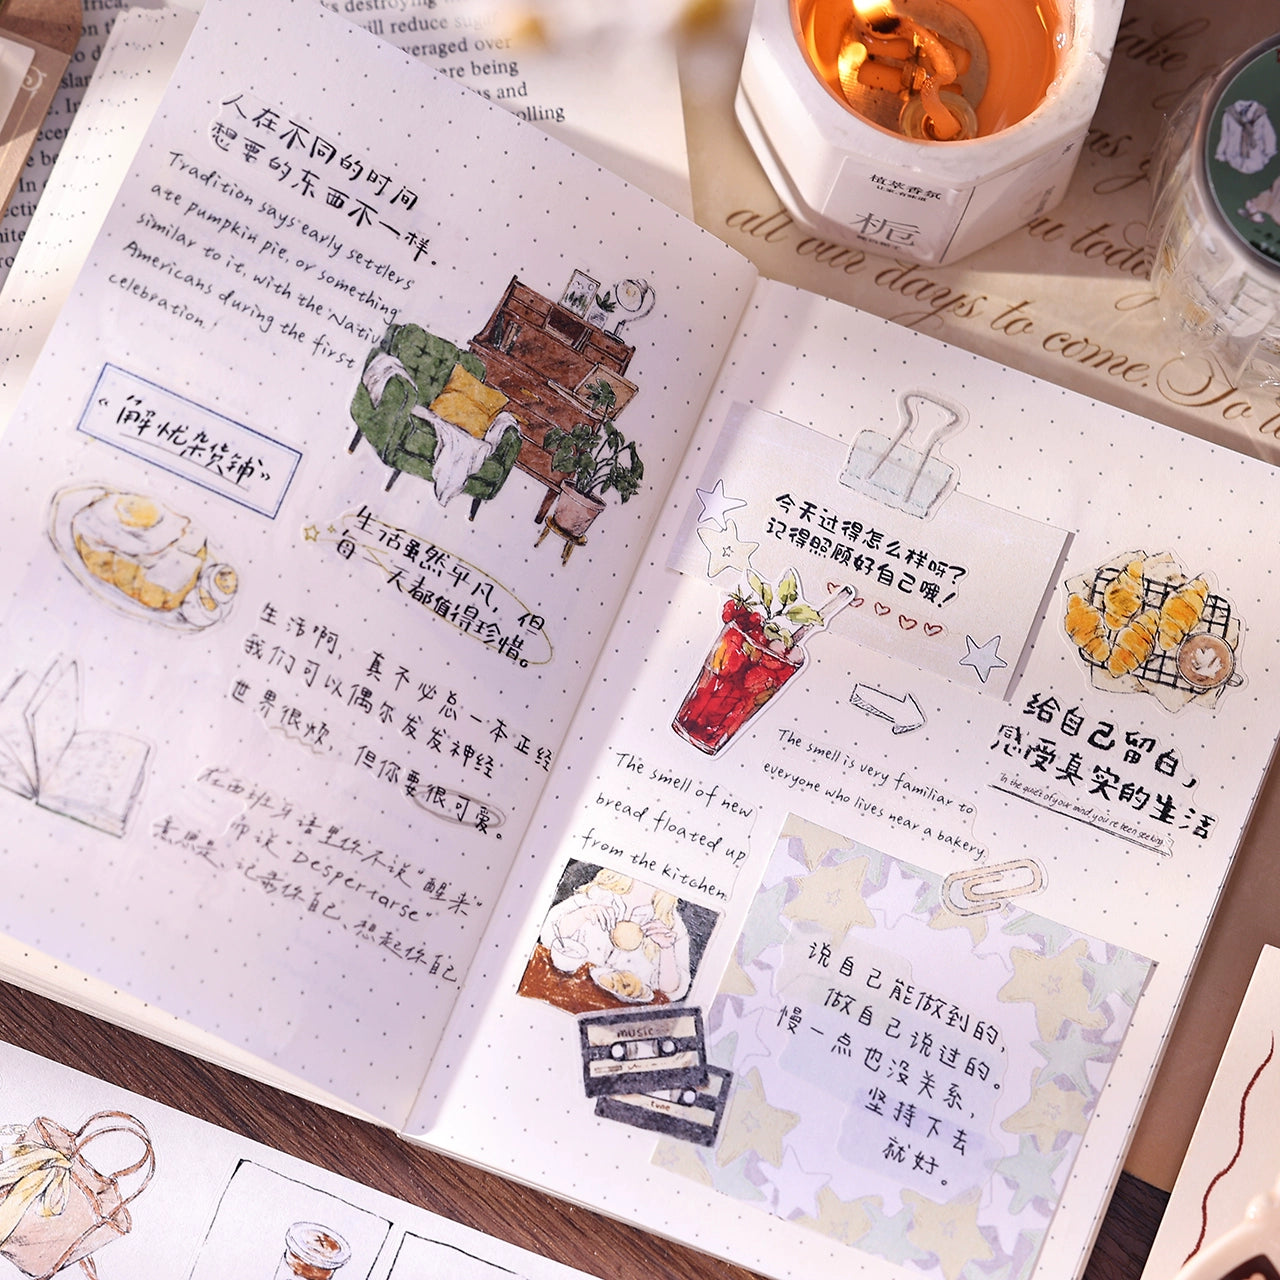 人在不同的时间
想要的东西不一样。
Tradition says early settlers
ate pumpkin pie, or something
similar to it, with the Nativ
Americans during the first
celebration.
《解忧杂货铺》
生活虽然平凡，但
每一天都值得珍惜。
生活啊，真不必总一本正经
我们可以偶尔发发神经
世界很烦，但你要很可爱。
在西班牙语里你不说“醒来”
而说“Despertarse”
意思是，记录你自己、想起你自己
今天过得怎么样呀？
记得照顾好自己哦！
给自己留白，
感受真实的生活
In the quiet of your mind you're been seeking
The smell is very familiar to
everyone who lives near a bakery.
The smell of new
bread floated up
from the kitchen.
music
tune
说自己能做到的，
做自己说过的。
慢一点也没关系，
坚持下去
就好。
植萃香氛
栀
all our days to come. To
u today
take
as
ks destroying
will reduce sugar
veraged over
ere being
us and
olling
frica,